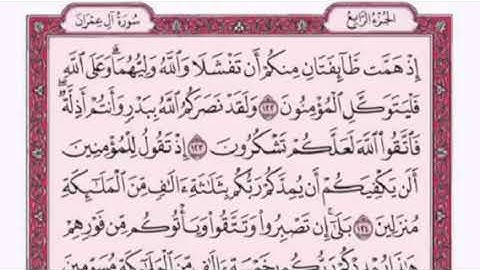 الجزء الرابع
سورة آل عمران
إِذْ هَمَّت طَّآئِفَتَانِ مِنكُمْ أَن تَفْشَلَا وَٱللَّهُ وَلِيُّهُمَا ۗ وَعَلَى ٱللَّهِ
فَلْيَتَوَكَّلِ ٱلْمُؤْمِنُونَ ١٢٢ وَلَقَدْ نَصَرَكُمُ ٱللَّهُ بِبَدْرٍ وَأَنتُمْ أَذِلَّةٌ ۖ
فَٱتَّقُوا۟ ٱللَّهَ لَعَلَّكُمْ تَشْكُرُونَ ١٢٣ إِذْ تَقُولُ لِلْمُؤْمِنِينَ
أَلَن يَكْفِيَكُمْ أَن يُمِدَّكُمْ رَبُّكُم بِثَلَٰثَةِ ءَالَٰفٍ مِّنَ ٱلْمَلَٰٓئِكَةِ
مُنزَلِينَ ١٢٤ بَلَىٰٓ ۚ إِن تَصْبِرُوا۟ وَتَتَّقُوا۟ وَيَأْتُوكُم مِّن فَوْرِهِمْ
هَٰذَا يُمْدِدْكُمْ رَبُّكُم بِخَمْسَةِ ءَالَٰفٍ مِّنَ ٱلْمَلَٰٓئِكَةِ مُسَوِّمِينَ